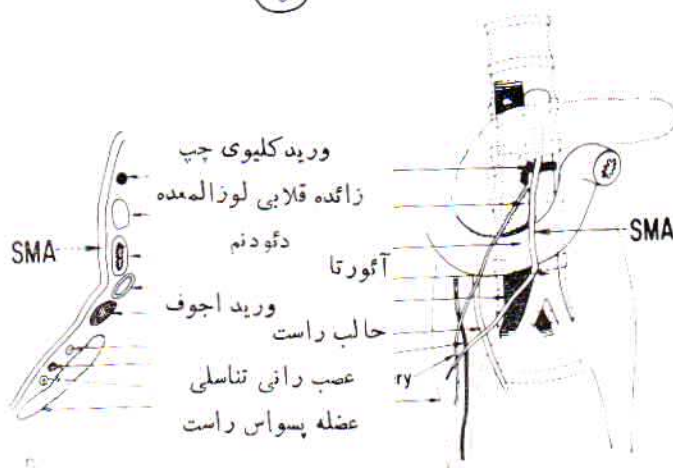 ورید کلیوی چپ
زائده قلابی لوزالمعده
دئودنم
SMA
SMA
آئورتا
ورید اجوف
حالب راست
عصب رانی تناسلی
ry
عضله پسواس راست